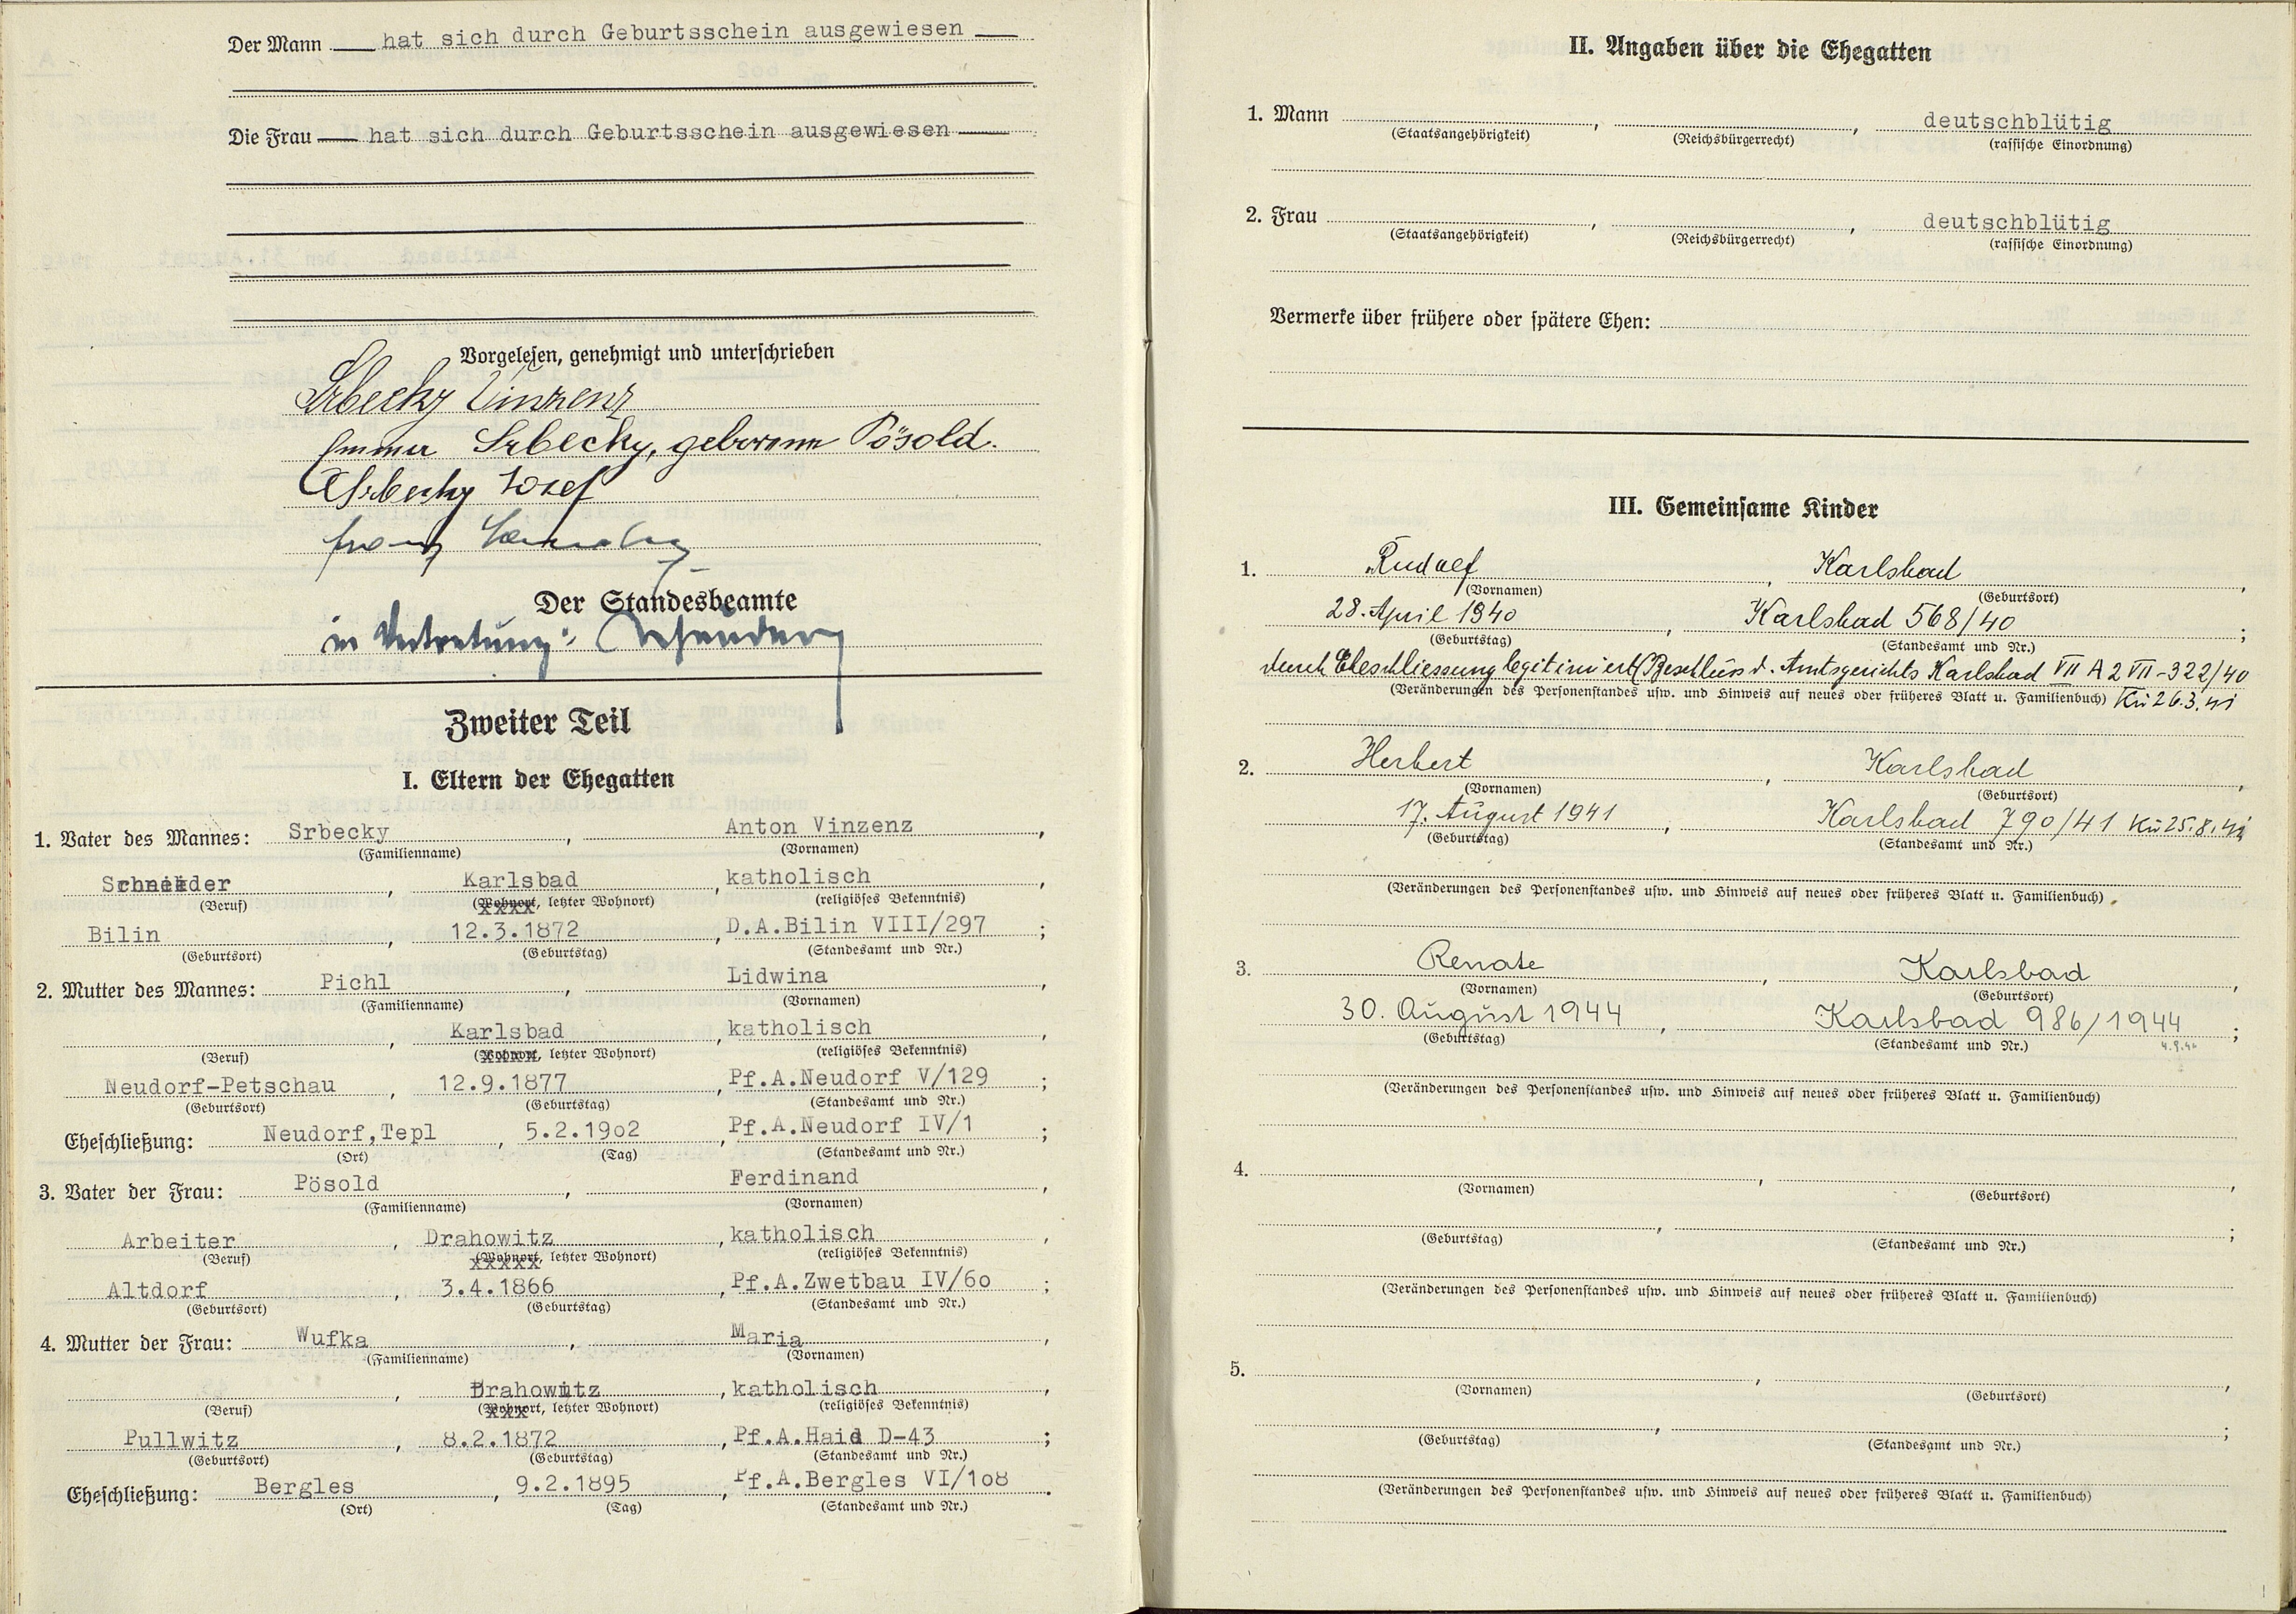 Der Mann hat sich durch Geburtsschein ausgewiesen
Die Frau hat sich durch Geburtsschein ausgewiesen
Vorgelesen, genehmigt und unterschrieben
Srbecky Vinzenz
Emma Srbecky, geborene Pösold.
Srbecky Josef
Franz
Der Standesbeamte
in Vertretung:
Zweiter Teil
I. Eltern der Ehegatten
1. Vater des Mannes: Srbecky, Anton Vinzenz,
(Familienname) (Vornamen)
Schneider, Karlsbad, katholisch,
(Beruf) (Wohnort, letzter Wohnort) (religiöses Bekenntnis)
Bilin, 12.3.1872, D.A.Bilin VIII/297;
(Geburtsort) (Geburtstag) (Standesamt und Nr.)
2. Mutter des Mannes: Pichl, Lidwina,
(Familienname) (Vornamen)
, Karlsbad, katholisch,
(Beruf) (Wohnort, letzter Wohnort) (religiöses Bekenntnis)
Neudorf-Petschau, 12.9.1877, Pf.A.Neudorf V/129;
(Geburtsort) (Geburtstag) (Standesamt und Nr.)
Eheschließung: Neudorf,Tepl, 5.2.19o2, Pf.A.Neudorf IV/1;
(Ort) (Tag) (Standesamt und Nr.)
3. Vater der Frau: Pösold, Ferdinand,
(Familienname) (Vornamen)
Arbeiter, Drahowitz, katholisch,
(Beruf) (Wohnort, letzter Wohnort) (religiöses Bekenntnis)
Altdorf, 3.4.1866, Pf.A.Zwetbau IV/6o;
(Geburtsort) (Geburtstag) (Standesamt und Nr.)
4. Mutter der Frau: Wufka, Maria,
(Familienname) (Vornamen)
, Drahowitz, katholisch,
(Beruf) (Wohnort, letzter Wohnort) (religiöses Bekenntnis)
Pullwitz, 8.2.1872, Pf.A.Haid D-43;
(Geburtsort) (Geburtstag) (Standesamt und Nr.)
Eheschließung: Bergles, 9.2.1895, Pf.A.Bergles VI/1o8.
(Ort) (Tag) (Standesamt und Nr.)
II. Angaben über die Ehegatten
1. Mann , , deutschblütig
(Staatsangehörigkeit) (Reichsbürgerrecht) (rassische Einordnung)
2. Frau , , deutschblütig
(Staatsangehörigkeit) (Reichsbürgerrecht) (rassische Einordnung)
Vermerke über frühere oder spätere Ehen:
III. Gemeinsame Kinder
1. Rudolf, Karlsbad,
(Vornamen) (Geburtsort)
28. April 1940, Karlsbad 568/40;
(Geburtstag) (Standesamt und Nr.)
durch Eheschliessung legitimiert (Beschluss d. Amtsgerichts Karlsbad VII A 2 VII-322/40
(Veränderungen des Personenstandes usw. und Hinweis auf neues oder früheres Blatt u. Familienbuch) Kü 26.3.41
2. Herbert, Karlsbad,
(Vornamen) (Geburtsort)
17. August 1941, Karlsbad 790/41 Kü 25.8.41
(Geburtstag) (Standesamt und Nr.)
(Veränderungen des Personenstandes usw. und Hinweis auf neues oder früheres Blatt u. Familienbuch)
3. Renate, Karlsbad,
(Vornamen) (Geburtsort)
30. August 1944, Karlsbad 986/1944;
(Geburtstag) (Standesamt und Nr.)
(Veränderungen des Personenstandes usw. und Hinweis auf neues oder früheres Blatt u. Familienbuch)
4. , ,
(Vornamen) (Geburtsort)
, ;
(Geburtstag) (Standesamt und Nr.)
(Veränderungen des Personenstandes usw. und Hinweis auf neues oder früheres Blatt u. Familienbuch)
5. , ,
(Vornamen) (Geburtsort)
, ;
(Geburtstag) (Standesamt und Nr.)
(Veränderungen des Personenstandes usw. und Hinweis auf neues oder früheres Blatt u. Familienbuch)